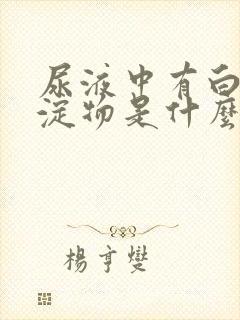 尿液中有白
淀物是什麼
楊亨燮